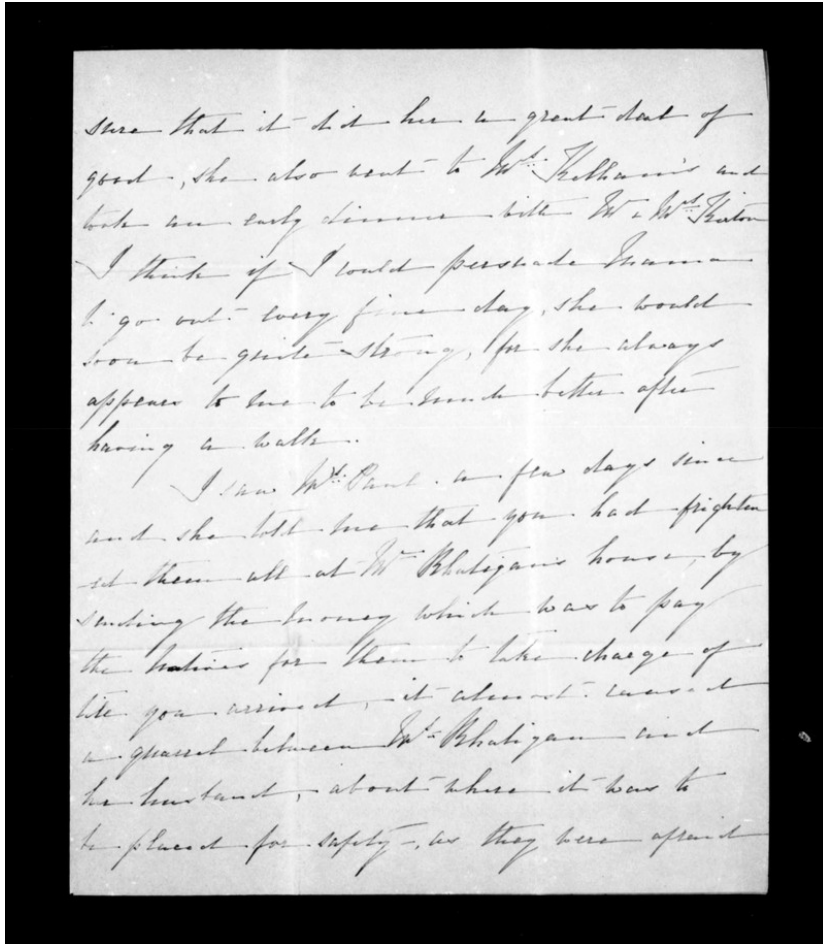 sure that it did her a great deal of
good, she also went to Mrs. Kelham's and
took an early dinner with Mr & Mrs. Kirton
I think if I could persuade Mama
to go out every fine day, she would
soon be quite strong, for she always
appears to me to be much better after
having a walk.
I saw Mrs. Paul a few days since
and she told me that you had frighten
-ed them all at Mr Rhatigan's house, by
sending the money which was to pay
the Natives for them to take charge of
till you arrived, it almost caused
a quarrel between Mrs. Rhatigan and
her husband, about where it was to
be placed for safety, as they were afraid